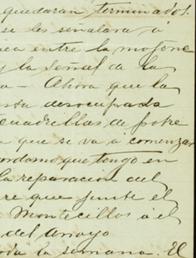 quedaran terminados
se les señalara a
nea entre la mojone
y la señal de la
- Ahora que la
sta desocupada
cuadrillas de postre
a que se va a comenzar
ordomo que tengo en
la reparacion del
re que junte el
Montecillos a el
del arroyo
toda la semana. El